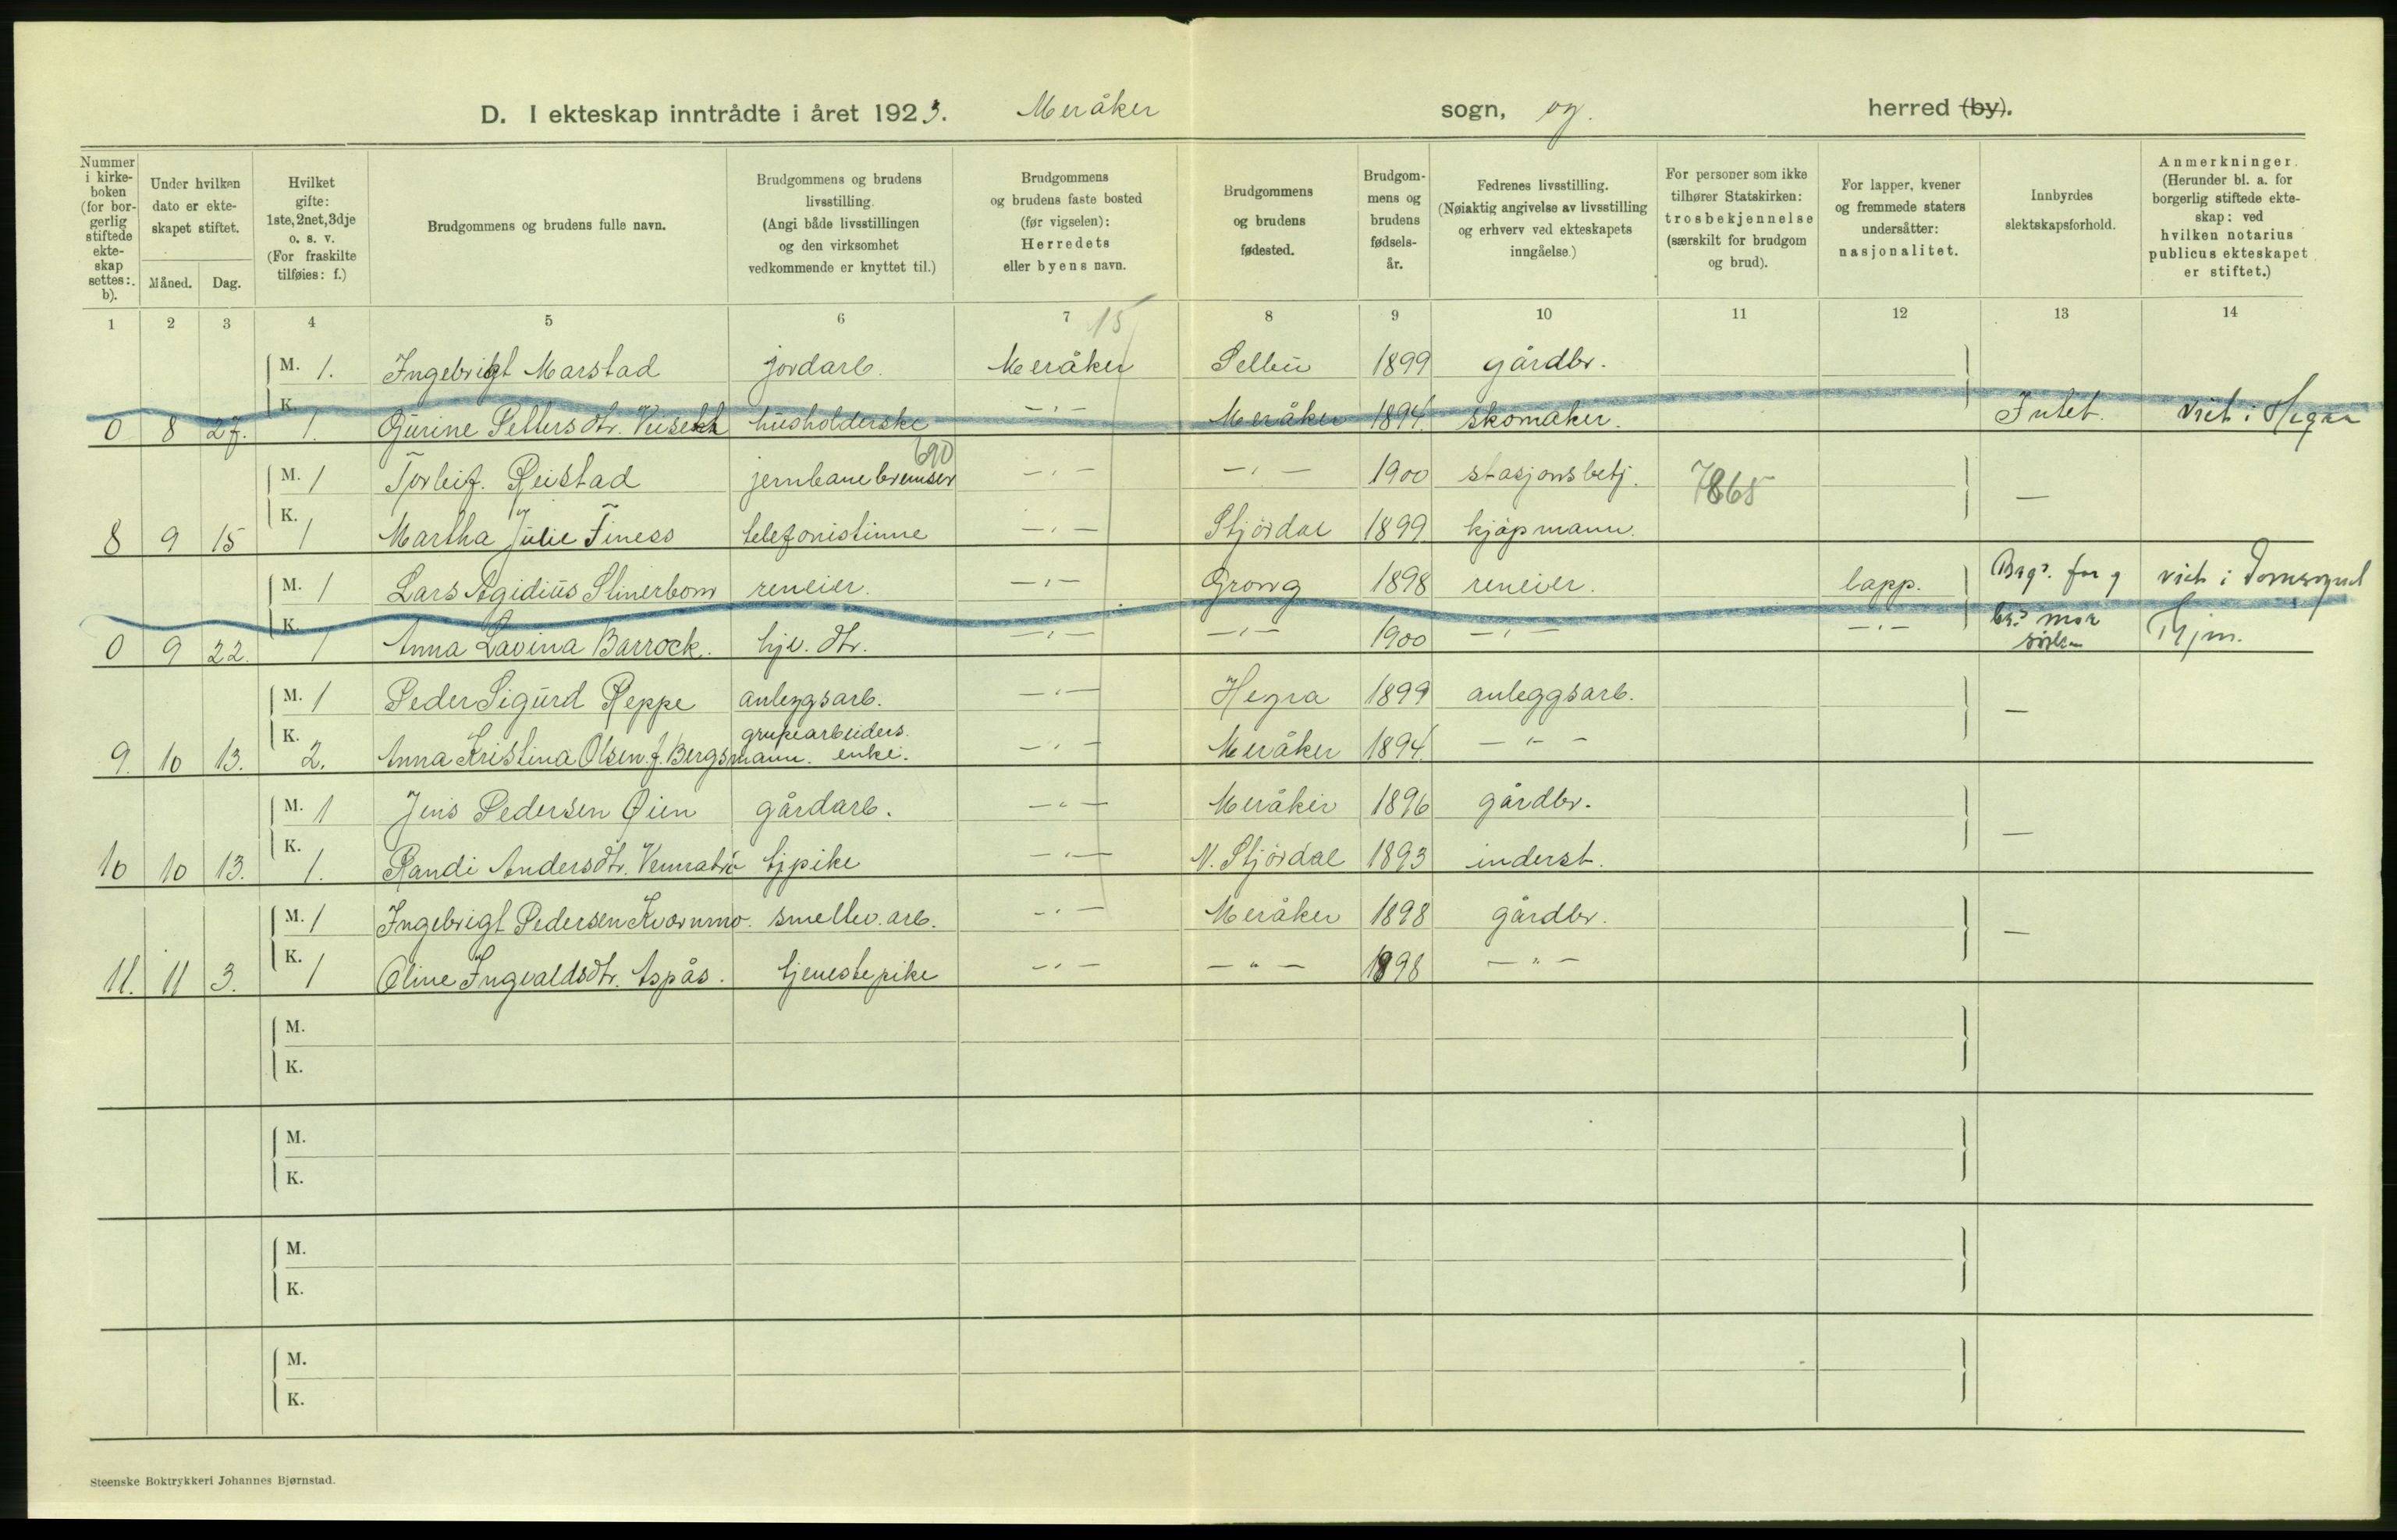 D. I ekteskap inntrådte i året 1923. Meråker sogn, og herred (by).
Nummer i kirkeboken (for borgerlig stiftede ekteskap settes: b).
Under hvilken dato er ekteskapet stiftet.
Måned. Dag.
Hvilket gifte: 1ste, 2net, 3dje o. s. v. (For fraskilte tilføies: f.)
Brudgommens og brudens fulle navn.
Brudgommens og brudens livsstilling. (Angi både livsstillingen og den virksomhet vedkommende er knyttet til.)
Brudgommens og brudens faste bosted (før vigselen): Herredets eller byens navn.
Brudgommens og brudens fødested.
Brudgommens og brudens fødselsår.
Fedrenes livsstilling. (Nøiaktig angivelse av livsstilling og erhverv ved ekteskapets inngåelse.)
For personer som ikke tilhører Statskirken: trosbekjennelse (særskilt for brudgom og brud).
For lapper, kvener og fremmede staters undersåtter: nasjonalitet.
Innbyrdes slektskapsforhold.
Anmerkninger. (Herunder bl. a. for borgerlig stiftede ekteskap: ved hvilken notarius publicus ekteskapet er stiftet.)
1 2 3 4 5 6 7 8 9 10 11 12 13 14
15
M. 1. Ingebrigt Marstad jordarb. Meråker Selbu 1899 gårdbr.
0 8 27. K. 1. Gurine Pettersdtr. husholderske -"- Meråker 1894 skomaker. Intet. viet i Hegra
690
M. 1 Torleif Reistad jernbanebremser -"- -"- 1900 stasjonsbetj. 7865
8 9 15 K. 1 Martha Julie Finess telefonistinne -"- Stjørdal 1899 kjøpmann. —
M. 1 Lars Agidius Stinerbom reneier. -"- Grong 1898 reneier. lapp. Brg's far og viet i Domsognet
0 9 22. K. 1 Anna Lavina Barrock. hjv. dtr. -"- -"- 1900 -"- -"- br's mor søsken Trhjm.
M. 1 Peder Sigurd Reppe anleggsarb. -"- Hegra 1899 anleggsarb.
9. 10 13. K. 2. Anna Kristina Olsen f. Bergsmann. grubearbeiders enke. -"- Meråker 1894. -"- —
M. 1 Jens Pedersen Øien gårdarb. -"- Meråker 1896 gårdbr.
10 10 13. K. 1. Randi Andersdtr. tjpike -"- N. Stjørdal 1893 inderst. —
M. 1 Ingebrigt Pedersen Kvernmo. smeltev. arb. -"- Meråker 1898 gårdbr.
11. 11 3. K. 1 Oline Ingvaldsdtr. Aspås. tjenestepike -"- -"- 1898 -"- —
M.
K.
M.
K.
M.
K.
M.
K.
Steenske Boktrykkeri Johannes Bjørnstad.